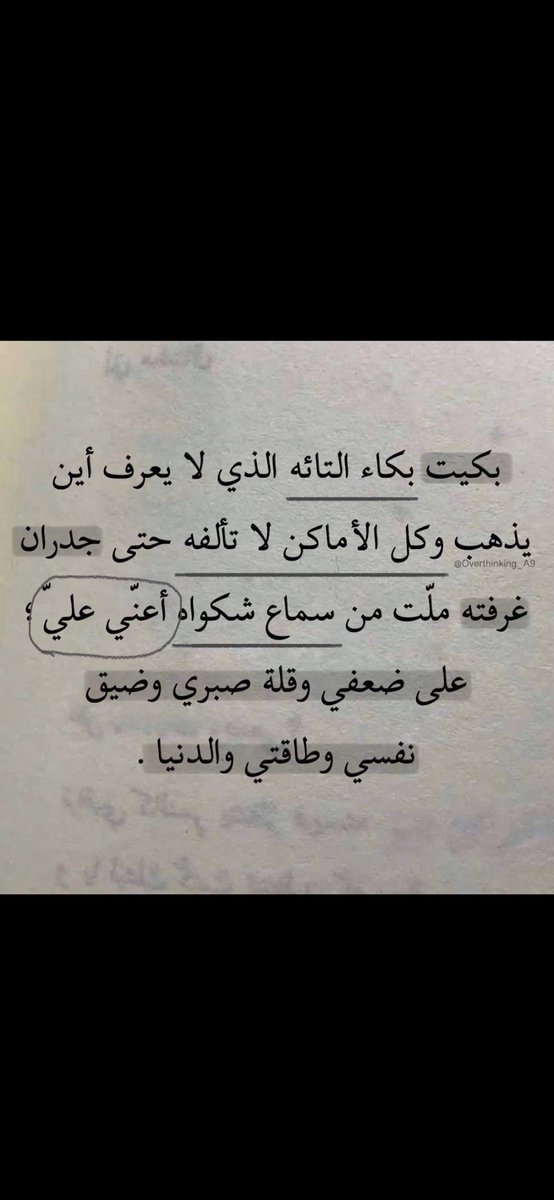 بكيت بكاء التائه الذي لا يعرف أين
يذهب وكل الأماكن لا تألفه حتى جدران
@Overthinking_A9
غرفته ملّت من سماع شكواه أعنّي عليّ ؛
على ضعفي وقلة صبري وضيق
نفسي وطاقتي والدنيا .